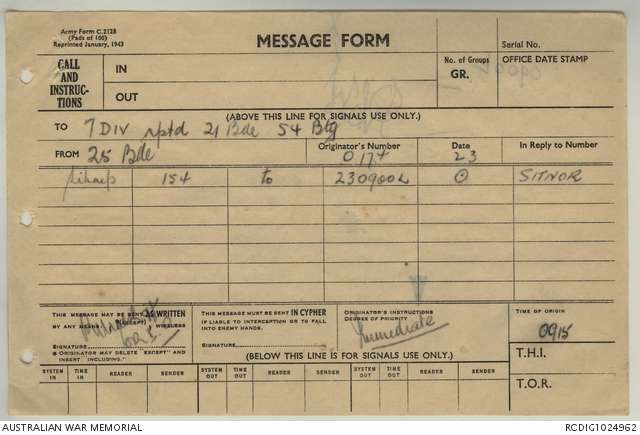 Army Form C.2128
(Pads of 100)
Reprinted January, 1943
MESSAGE FORM
Serial No.
CALL AND INSTRUC-TIONS
IN
OUT
No. of Groups GR.
OFFICE DATE STAMP
(ABOVE THIS LINE FOR SIGNALS USE ONLY.)
TO 7 DIV rptd 21 Bde 54 Btg
FROM 25 Bde
Originator's Number 0174
Date 23
In Reply to Number
154 to 230900L SITNOR
THIS MESSAGE MAY BE SENT AS WRITTEN
BY ANY MEANS (EXCEPT) WIRELESS
SIGNATURE
ORIGINATOR MAY DELETE "EXCEPT" AND INSERT "INCLUDING."
THIS MESSAGE MUST BE SENT IN CYPHER
IF LIABLE TO INTERCEPTION OR TO FALL INTO ENEMY HANDS.
SIGNATURE
ORIGINATOR'S INSTRUCTIONS
DEGREE OF PRIORITY
Immediate
TIME OF ORIGIN
0915
(BELOW THIS LINE IS FOR SIGNALS USE ONLY.)
T.H.I.
T.O.R.
SYSTEM IN TIME IN READER SENDER SYSTEM OUT TIME OUT READER SENDER SYSTEM OUT TIME OUT READER SENDER
AUSTRALIAN WAR MEMORIAL
RCDIG1024962